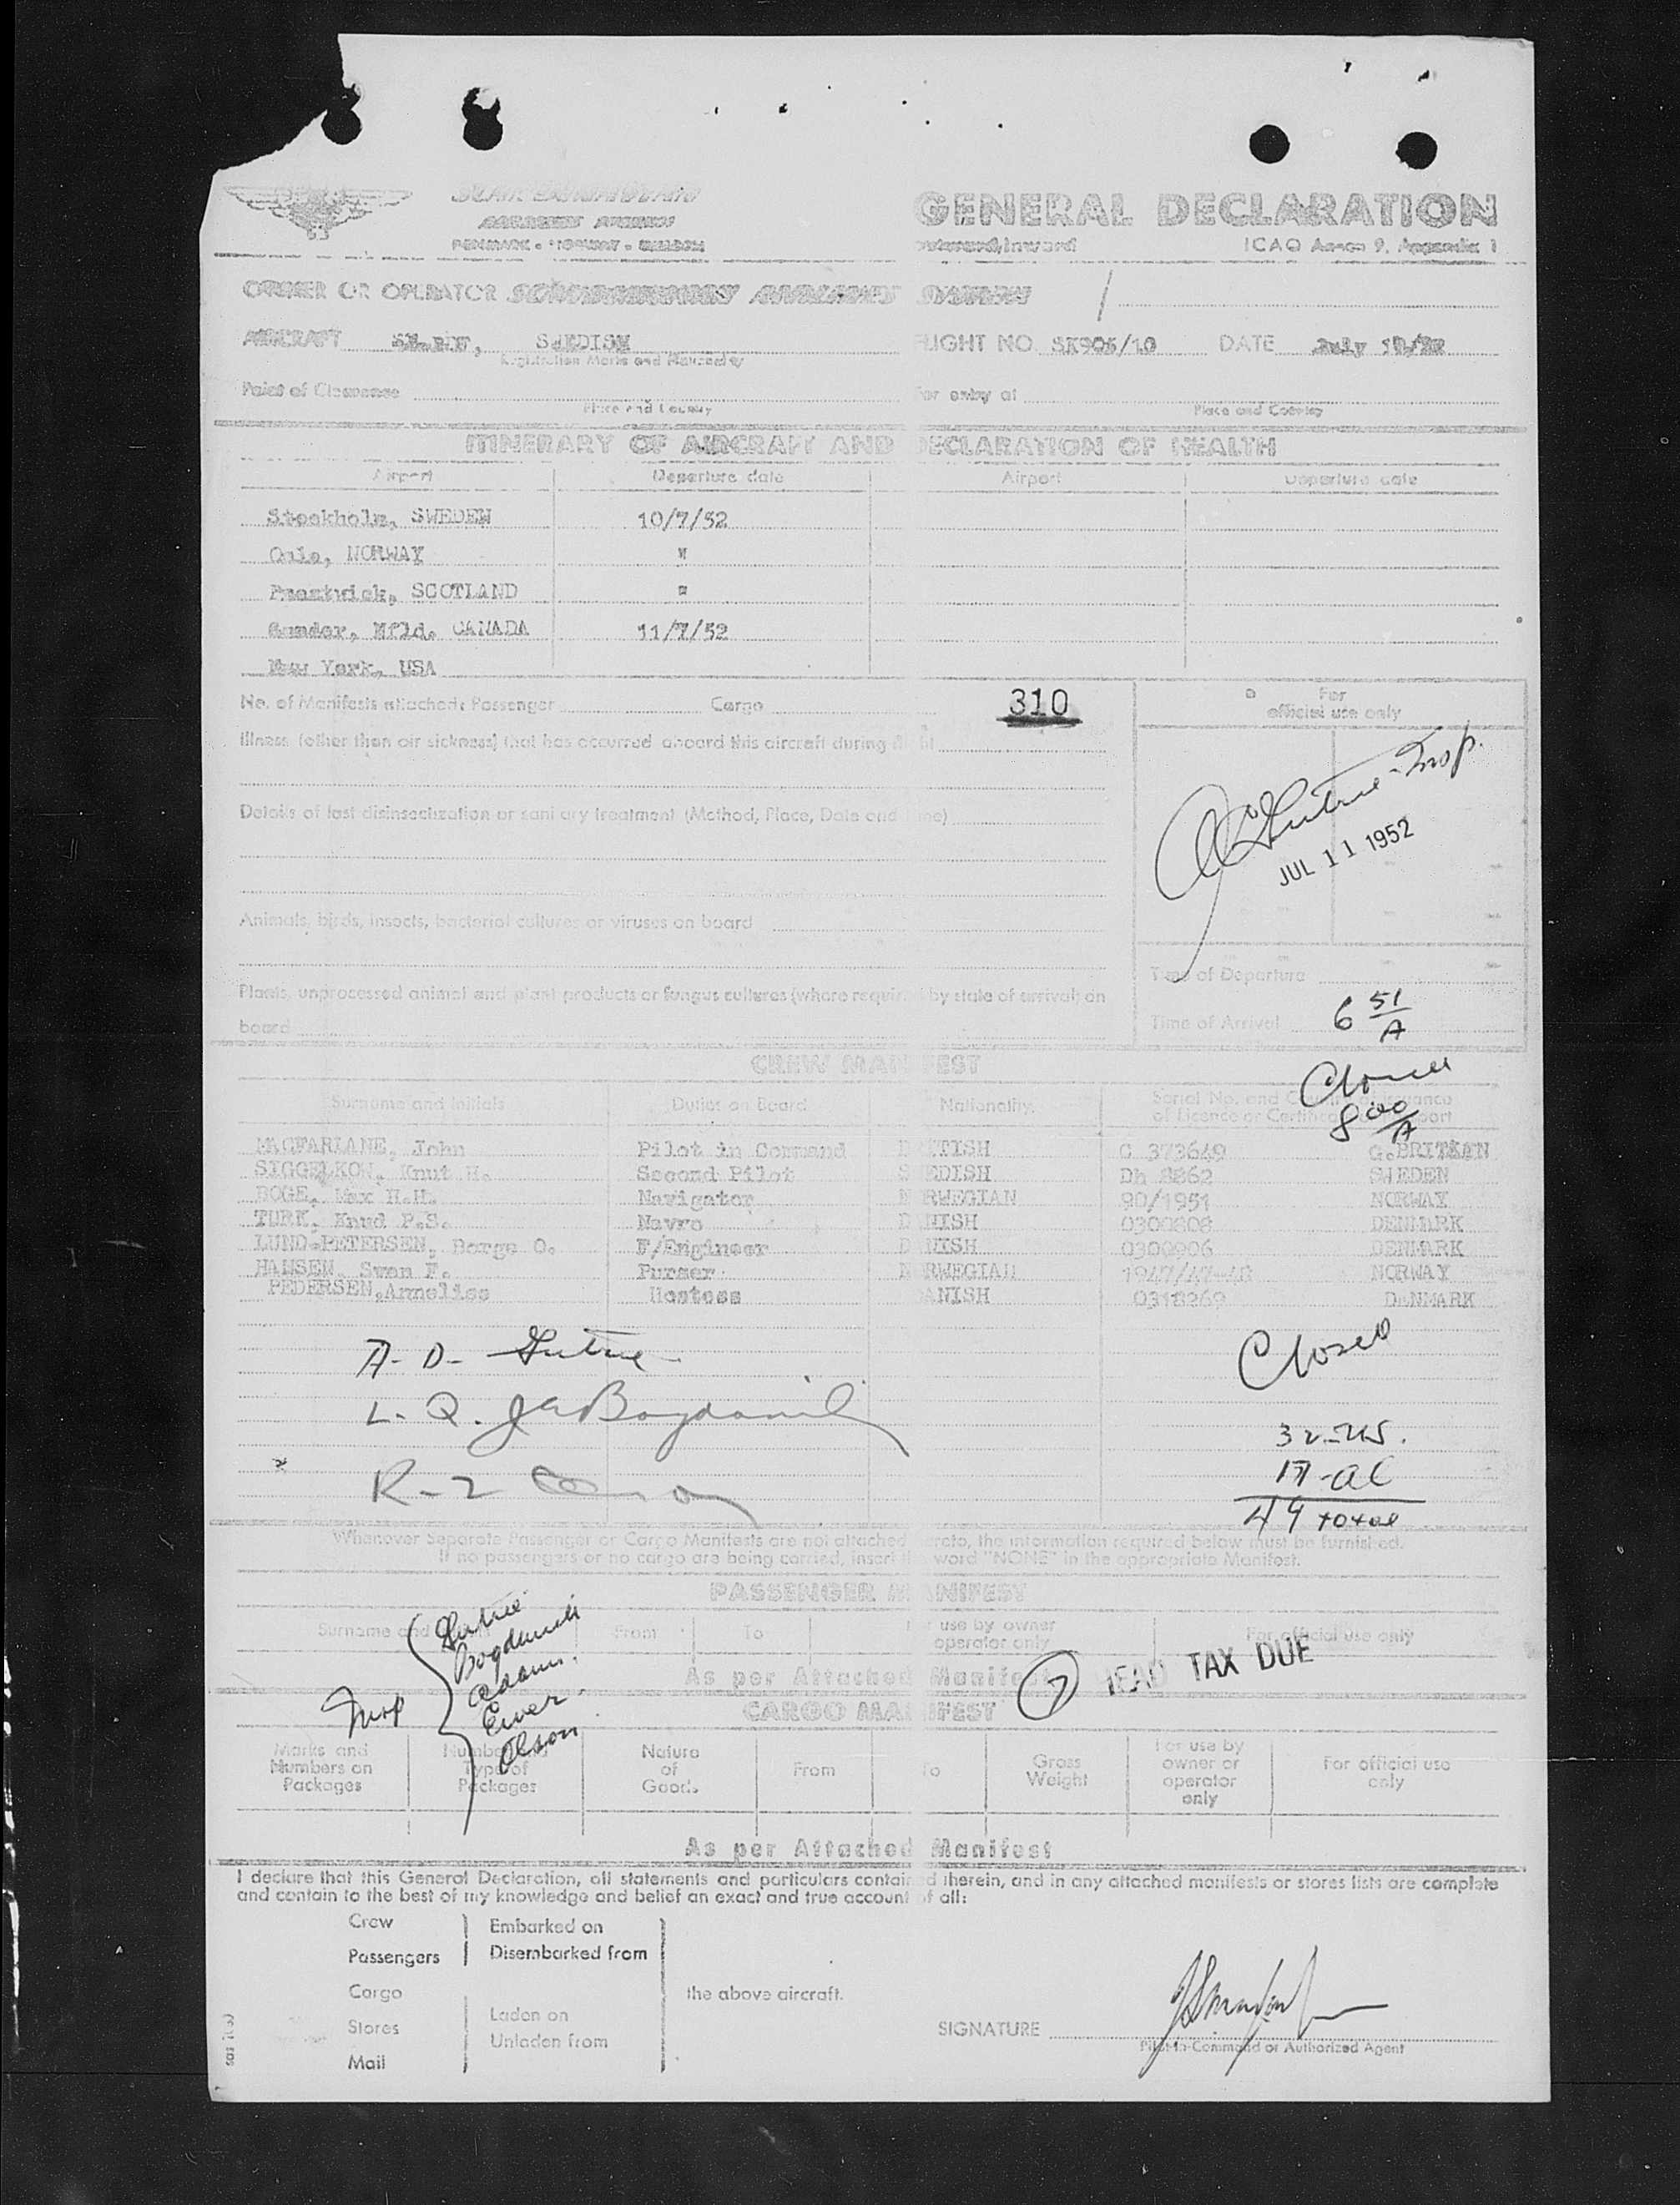 SCANDINAVIAN
AIRLINES SYSTEM
DENMARK - NORWAY - SWEDEN
GENERAL DECLARATION
outward/inward ICAO Annex 9, Appendix 1
OWNER OR OPERATOR SCANDINAVIAN AIRLINES SYSTEM
AIRCRAFT SWEDISH FLIGHT NO. DATE July
Registration Marks and Nationality
Point of Clearance For entry at
Place and Country Place and Country
ITINERARY OF AIRCRAFT AND DECLARATION OF HEALTH
Airport Departure date Airport Departure date
Stockholm, SWEDEN 10/7/52
Oslo, NORWAY "
Prestwick, SCOTLAND "
Gander, Nfld. CANADA 11/7/52
New York, USA
No. of Manifests attached: Passenger Cargo 310
For
official use only
Illness (other than air sickness) that has occurred aboard this aircraft during flight
Insp.
JUL 11 1952
Details of last disinsectization or sanitary treatment (Method, Place, Date and Time)
Animals, birds, insects, bacterial cultures or viruses on board
Time of Departure
Plants, unprocessed animal and plant products or fungus cultures (where required by state of arrival) on
board
Time of Arrival 6 51/A
CREW MANIFEST
8 00/A
Surname and Initials Duties on Board Nationality Serial No. and Country of Issuance
of Licence or Certificate
MACFARLANE, John Pilot in Command BRITISH C 373649 G.BRITAIN
SIGGELKOW, Knut H. Second Pilot SWEDISH Dh 8862 SWEDEN
BOGE, Max H.H. Navigator NORWEGIAN 90/1951 NORWAY
TURK, Knud P.S. Navro DANISH 0300808 DENMARK
LUND-PETERSEN, Borge O. F/Engineer DANISH 0300906 DENMARK
HANSEN, Sven F. Purser NORWEGIAN 1947/47-48 NORWAY
PEDERSEN, Annelise Hostess DANISH 0318269 DENMARK
A-D-
Closed
L.Q.
32-US.
R-2
17-al
49 total
Whenever Separate Passenger or Cargo Manifests are not attached hereto, the information required below must be furnished.
If no passengers or no cargo are being carried, insert the word "NONE" in the appropriate Manifest.
PASSENGER MANIFEST
Surname and From To For use by owner
operator only For official use only
As per Attached Manifest
7 HEAD TAX DUE
Insp
Olson
CARGO MANIFEST
Marks and
Numbers on
Packages Number and
Type of
Packages Nature
of
Goods From To Gross
Weight For use by
owner or
operator
only For official use
only
As per Attached Manifest
I declare that this General Declaration, all statements and particulars contained therein, and in any attached manifests or stores lists are complete
and contain to the best of my knowledge and belief an exact and true account of all:
Crew Embarked on
Passengers Disembarked from
Cargo the above aircraft.
Stores Laden on
Unladen from
Mail
SIGNATURE
Pilot-in-Command or Authorized Agent